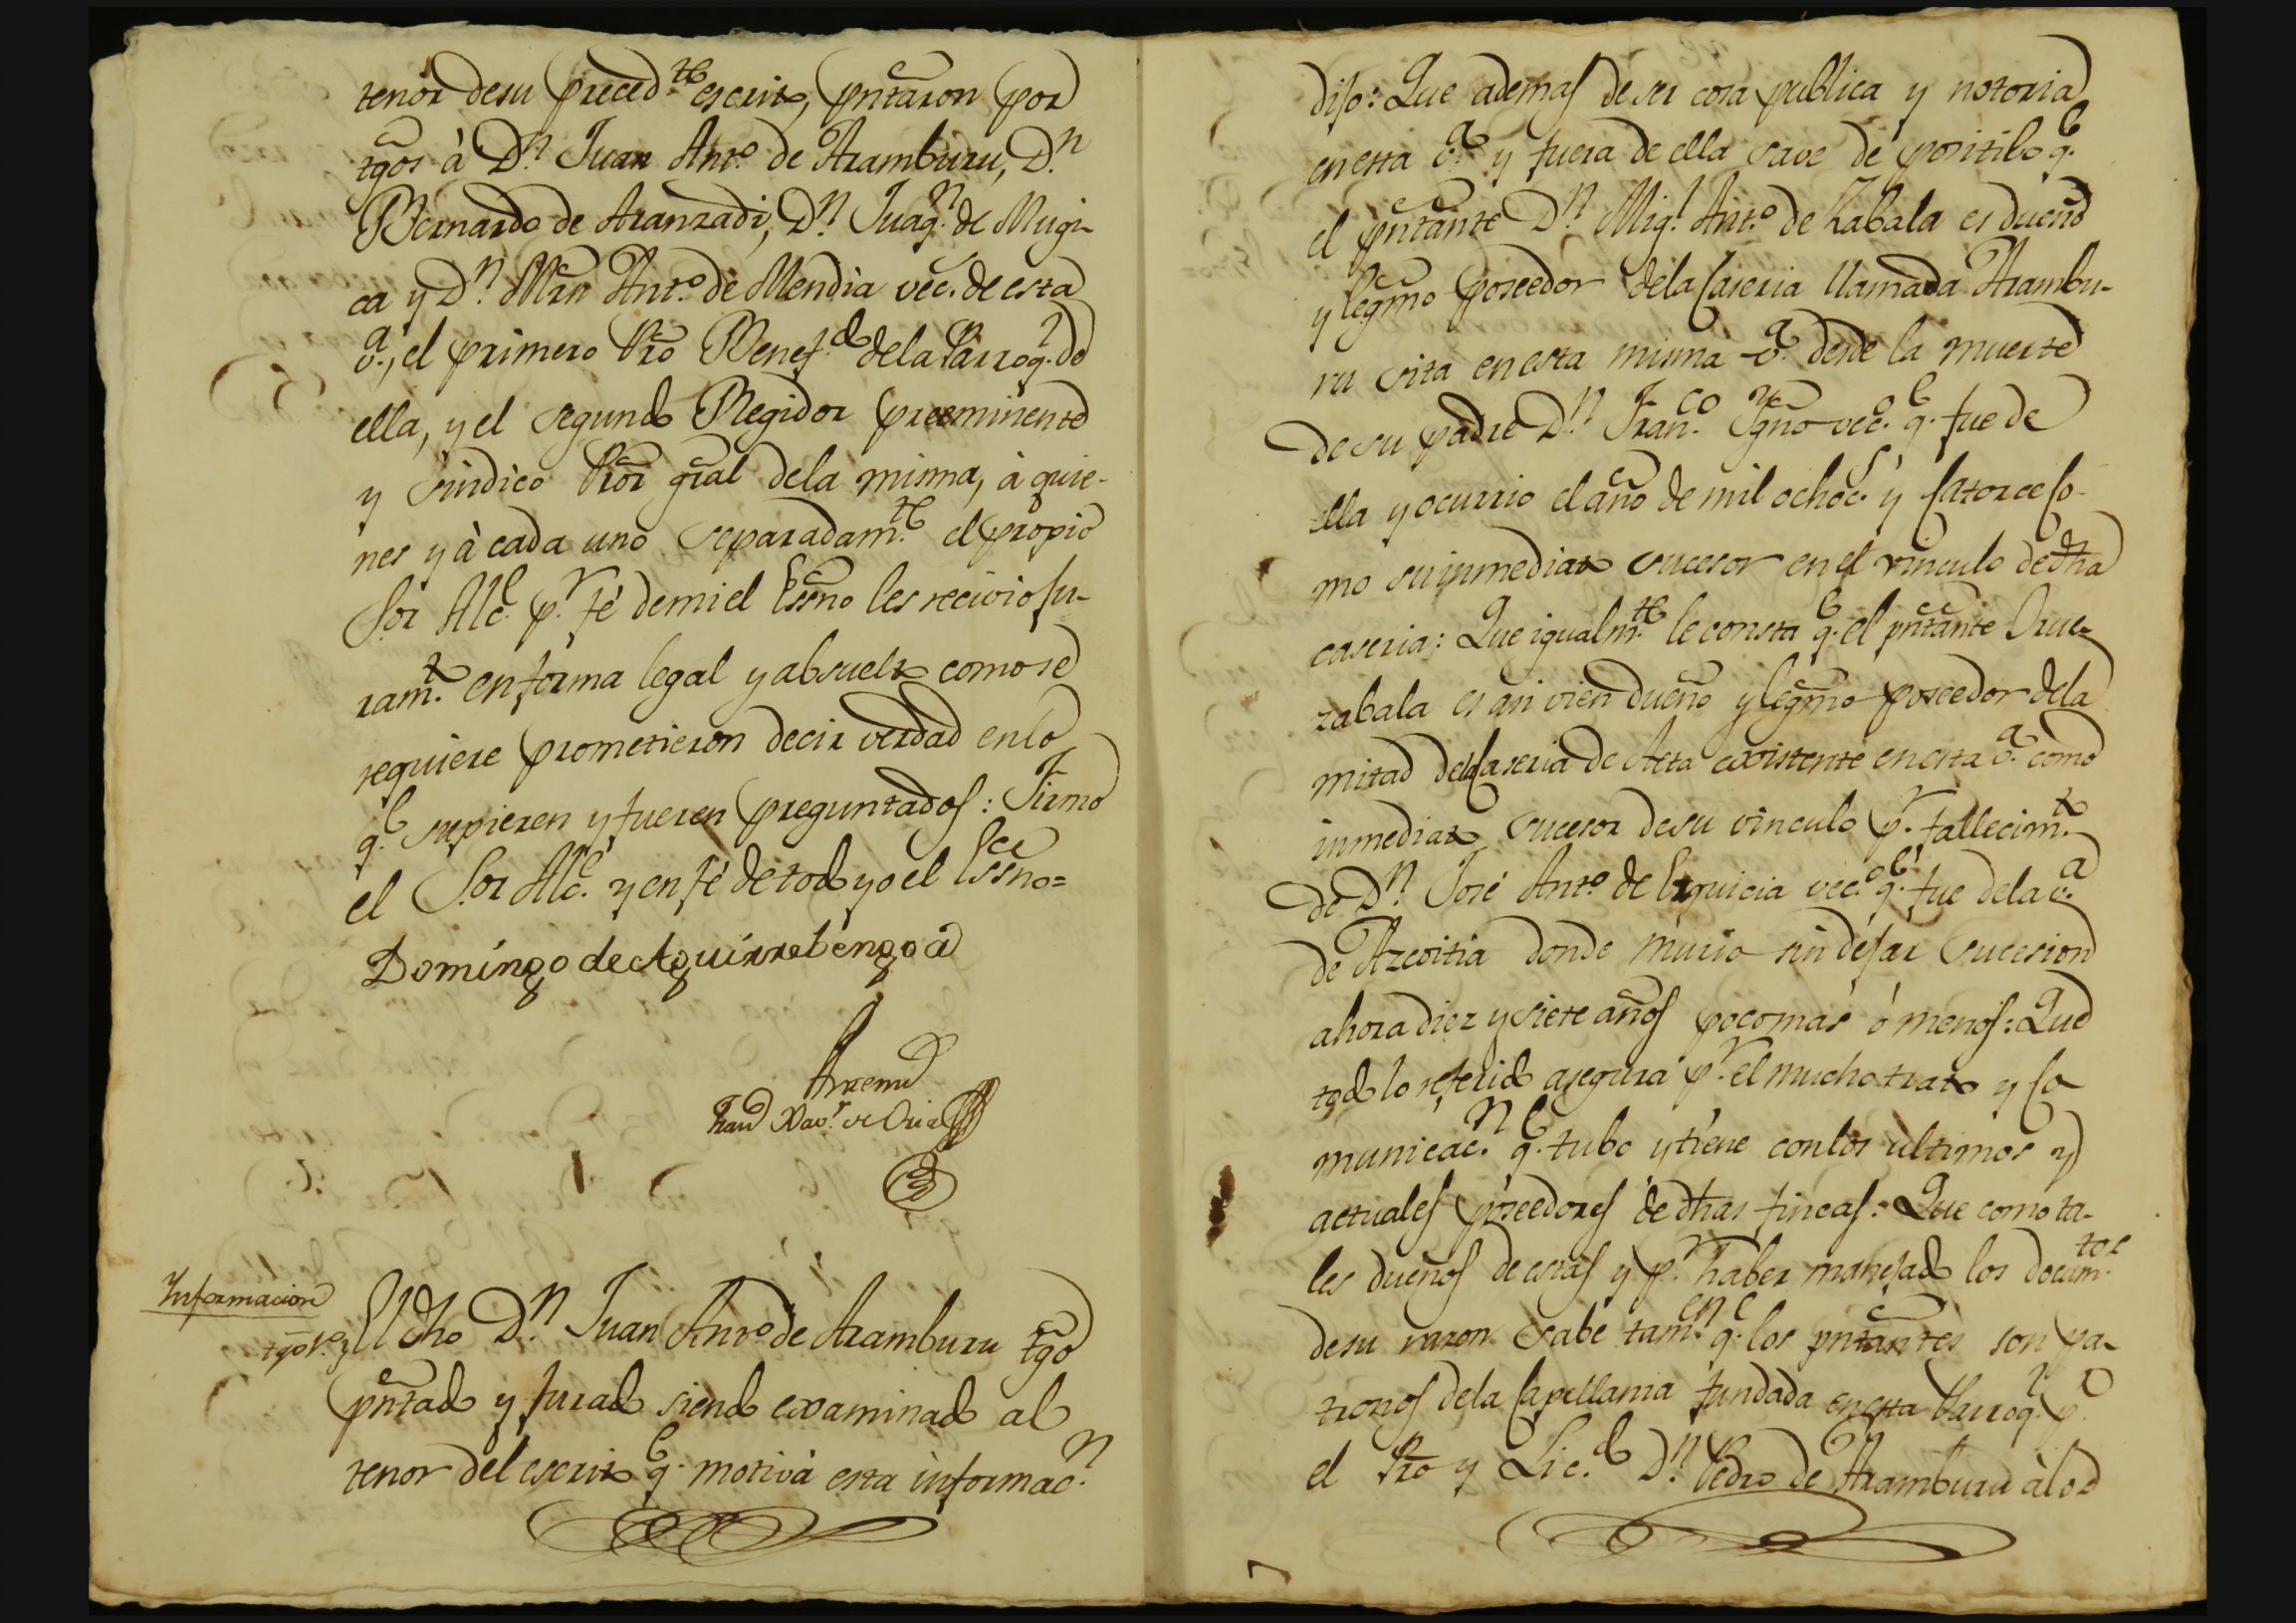 tenor desu preced.te escrito, pntaron por
tgos à D.n Juan Ant.o de Aramburu, D.n
Bernardo de Aranzadi, D.n Juaq.n de Mugi-
ca y D.n Mrn Ant.o de Mendia vec.s de esta
v.a, el primero Pro Benef.do dela Parroq.l de
ella, y el segundo Regidor preeminente
y sindico Pror gral dela misma, à quie-
nes y à cada uno separadam.te el propio
Sor Alc.e p.r fé demi el Essno les recivio Ju-
ram.to en forma legal y absuelto como se
requiere prometieron decir verdad en lo
q.e supieren y fueren preguntados: Firmo
el Sor Alc.e y en fé de todo yo el Essno=
Domingo de Aguirrebengoa
Antemi
Fran.co Xav.r de Oria
Informacion
tgo 1.o
El dho D.n Juan Ant.o de Aramburu tgo
pntado y Jurado siendo examinado al
tenor del escrito q.e motiva esta informac.n
dijo: Que ademas de ser cosa publica y notoria
en esta v.a y fuera de ella save de positibo q.e
el pntante D.n Mig.l Ant.o de Zabala es dueño
y legmo poseedor dela Caseria llamada Arambu-
ru sita en esta misma v.a desde la muerte
de su padre D.n Fran.co Ygno vec.o q.e fue de
ella y ocurrio el año de mil ochoc.s y Catorce Co-
mo su inmediato sucesor en el vinculo de dha
caseria: Que igualm.te le consta q.e el pntante Orue-
zabala es asi vien dueño y legmo poseedor dela
mitad dela Caseria de Aeta existente en esta v.a como
inmediato sucesor desu vinculo p.r fallecim.to
de D.n José Ant.o de Eguicia vec.o q.e fue dela v.a
de Azcoitia donde murio sin dejar sucesion
ahora diez y siete años poco mas ó menos: Que
todo lo referido asegura p.r el mucho trato y Co
municac.n q.e tubo y tiene con los ultimos y
actuales poseedores de dhas fincas: Que como ta-
les dueños de estas y p.r haber manejado los docum.tos
desu razon sabe tam.en q.e los pntantes son pa-
tronos dela Capellania fundada en esta Parroq.l p.r
el Pro y Lic.do D.n Pedro de Aramburu à los